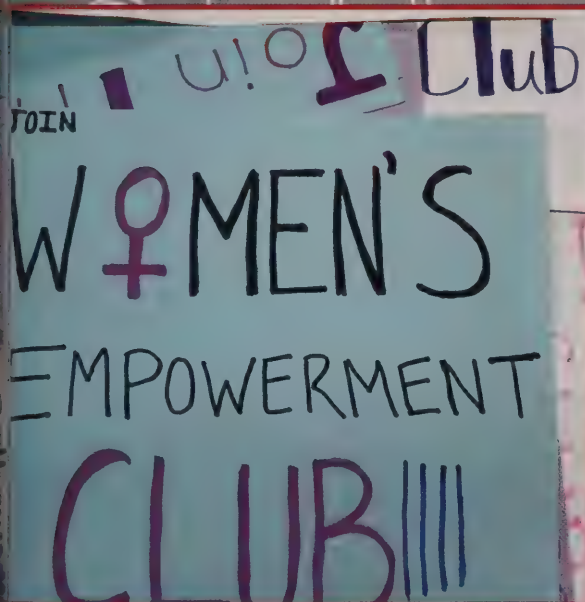 Join Club
JOIN
W♀MEN'S
EMPOWERMENT
CLUB